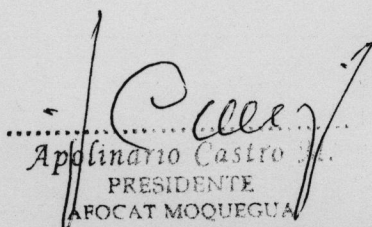 Apolinario Castro M.
PRESIDENTE
AFOCAT MOQUEGUA